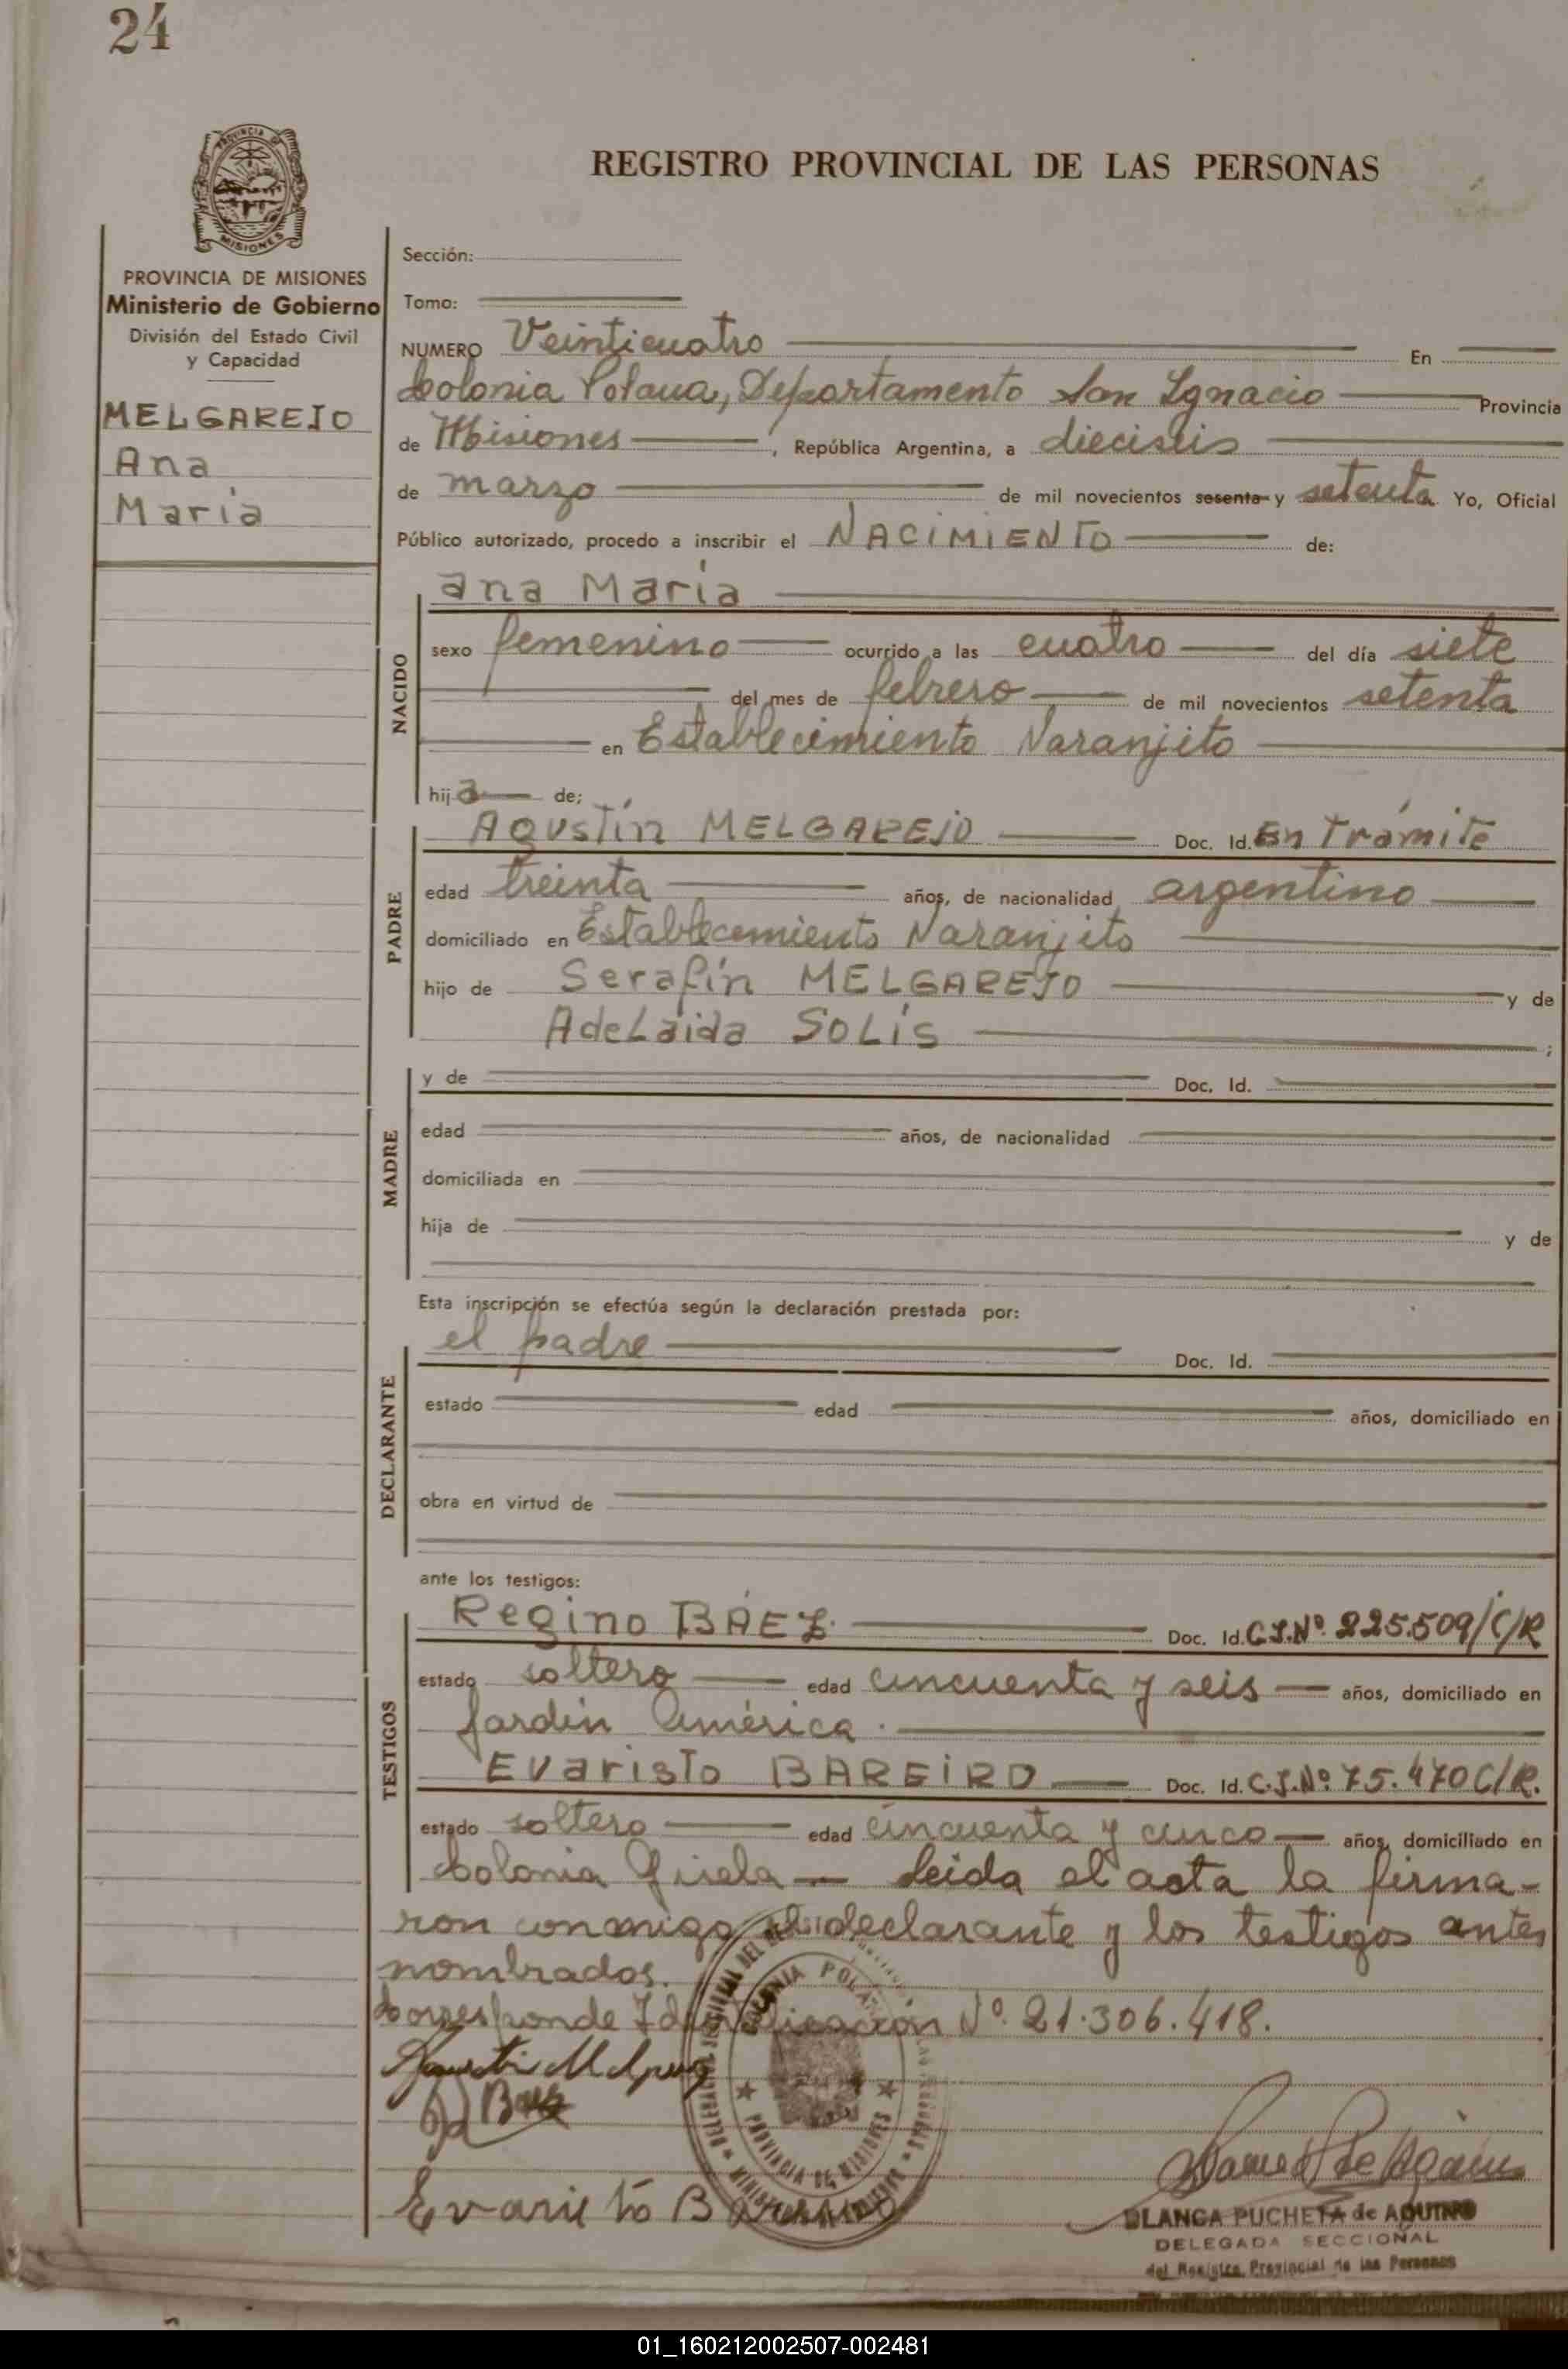 24
PROVINCIA DE
MISIONES
REGISTRO PROVINCIAL DE LAS PERSONAS
PROVINCIA DE MISIONES
Ministerio de Gobierno
División del Estado Civil
y Capacidad
MELGAREJO
Ana
María
Sección:
Tomo:
NUMERO Veinticuatro En
Colonia Polana, Departamento San Ignacio Provincia
de Misiones, República Argentina, a dieciseis
de marzo de mil novecientos sesenta y setenta Yo, Oficial
Público autorizado, procedo a inscribir el NACIMIENTO de:
Ana María
NACIDO
sexo femenino ocurrido a las cuatro del día siete
del mes de febrero de mil novecientos setenta
en Establecimiento Naranjito
hija de;
PADRE
Agustín MELGAREJO Doc. Id. En Trámite
edad treinta años, de nacionalidad argentino
domiciliado en Establecemiento Naranjito
hijo de Serafín MELGAREJO y de
Adelaida SOLÍS ;
MADRE
y de Doc. Id.
edad años, de nacionalidad
domiciliada en
hija de y de
Esta inscripción se efectúa según la declaración prestada por:
DECLARANTE
el padre Doc. Id.
estado edad años, domiciliado en
obra en virtud de
ante los testigos:
TESTIGOS
Regino BÁEZ. Doc. Id. C.I.Nº 225.509/C/R
estado soltero edad cincuenta y seis años, domiciliado en
Jardín América.
Evaristo BAREIRO Doc. Id. C.I.Nº 75.470 C/R.
estado soltero edad cincuenta y cinco años, domiciliado en
Colonia Gisela leida el acta la firma-
ron conmigo el declarante y los testigos antes
nombrados.
Corresponde Identificación Nº 21.306.418.
COLONIA POLANA
PROVINCIA DE MISIONES
Evaristo Bareiro
BLANCA PUCHETA de AQUINO
DELEGADA SECCIONAL
del Registro Provincial de las Personas
01_160212002507-002481